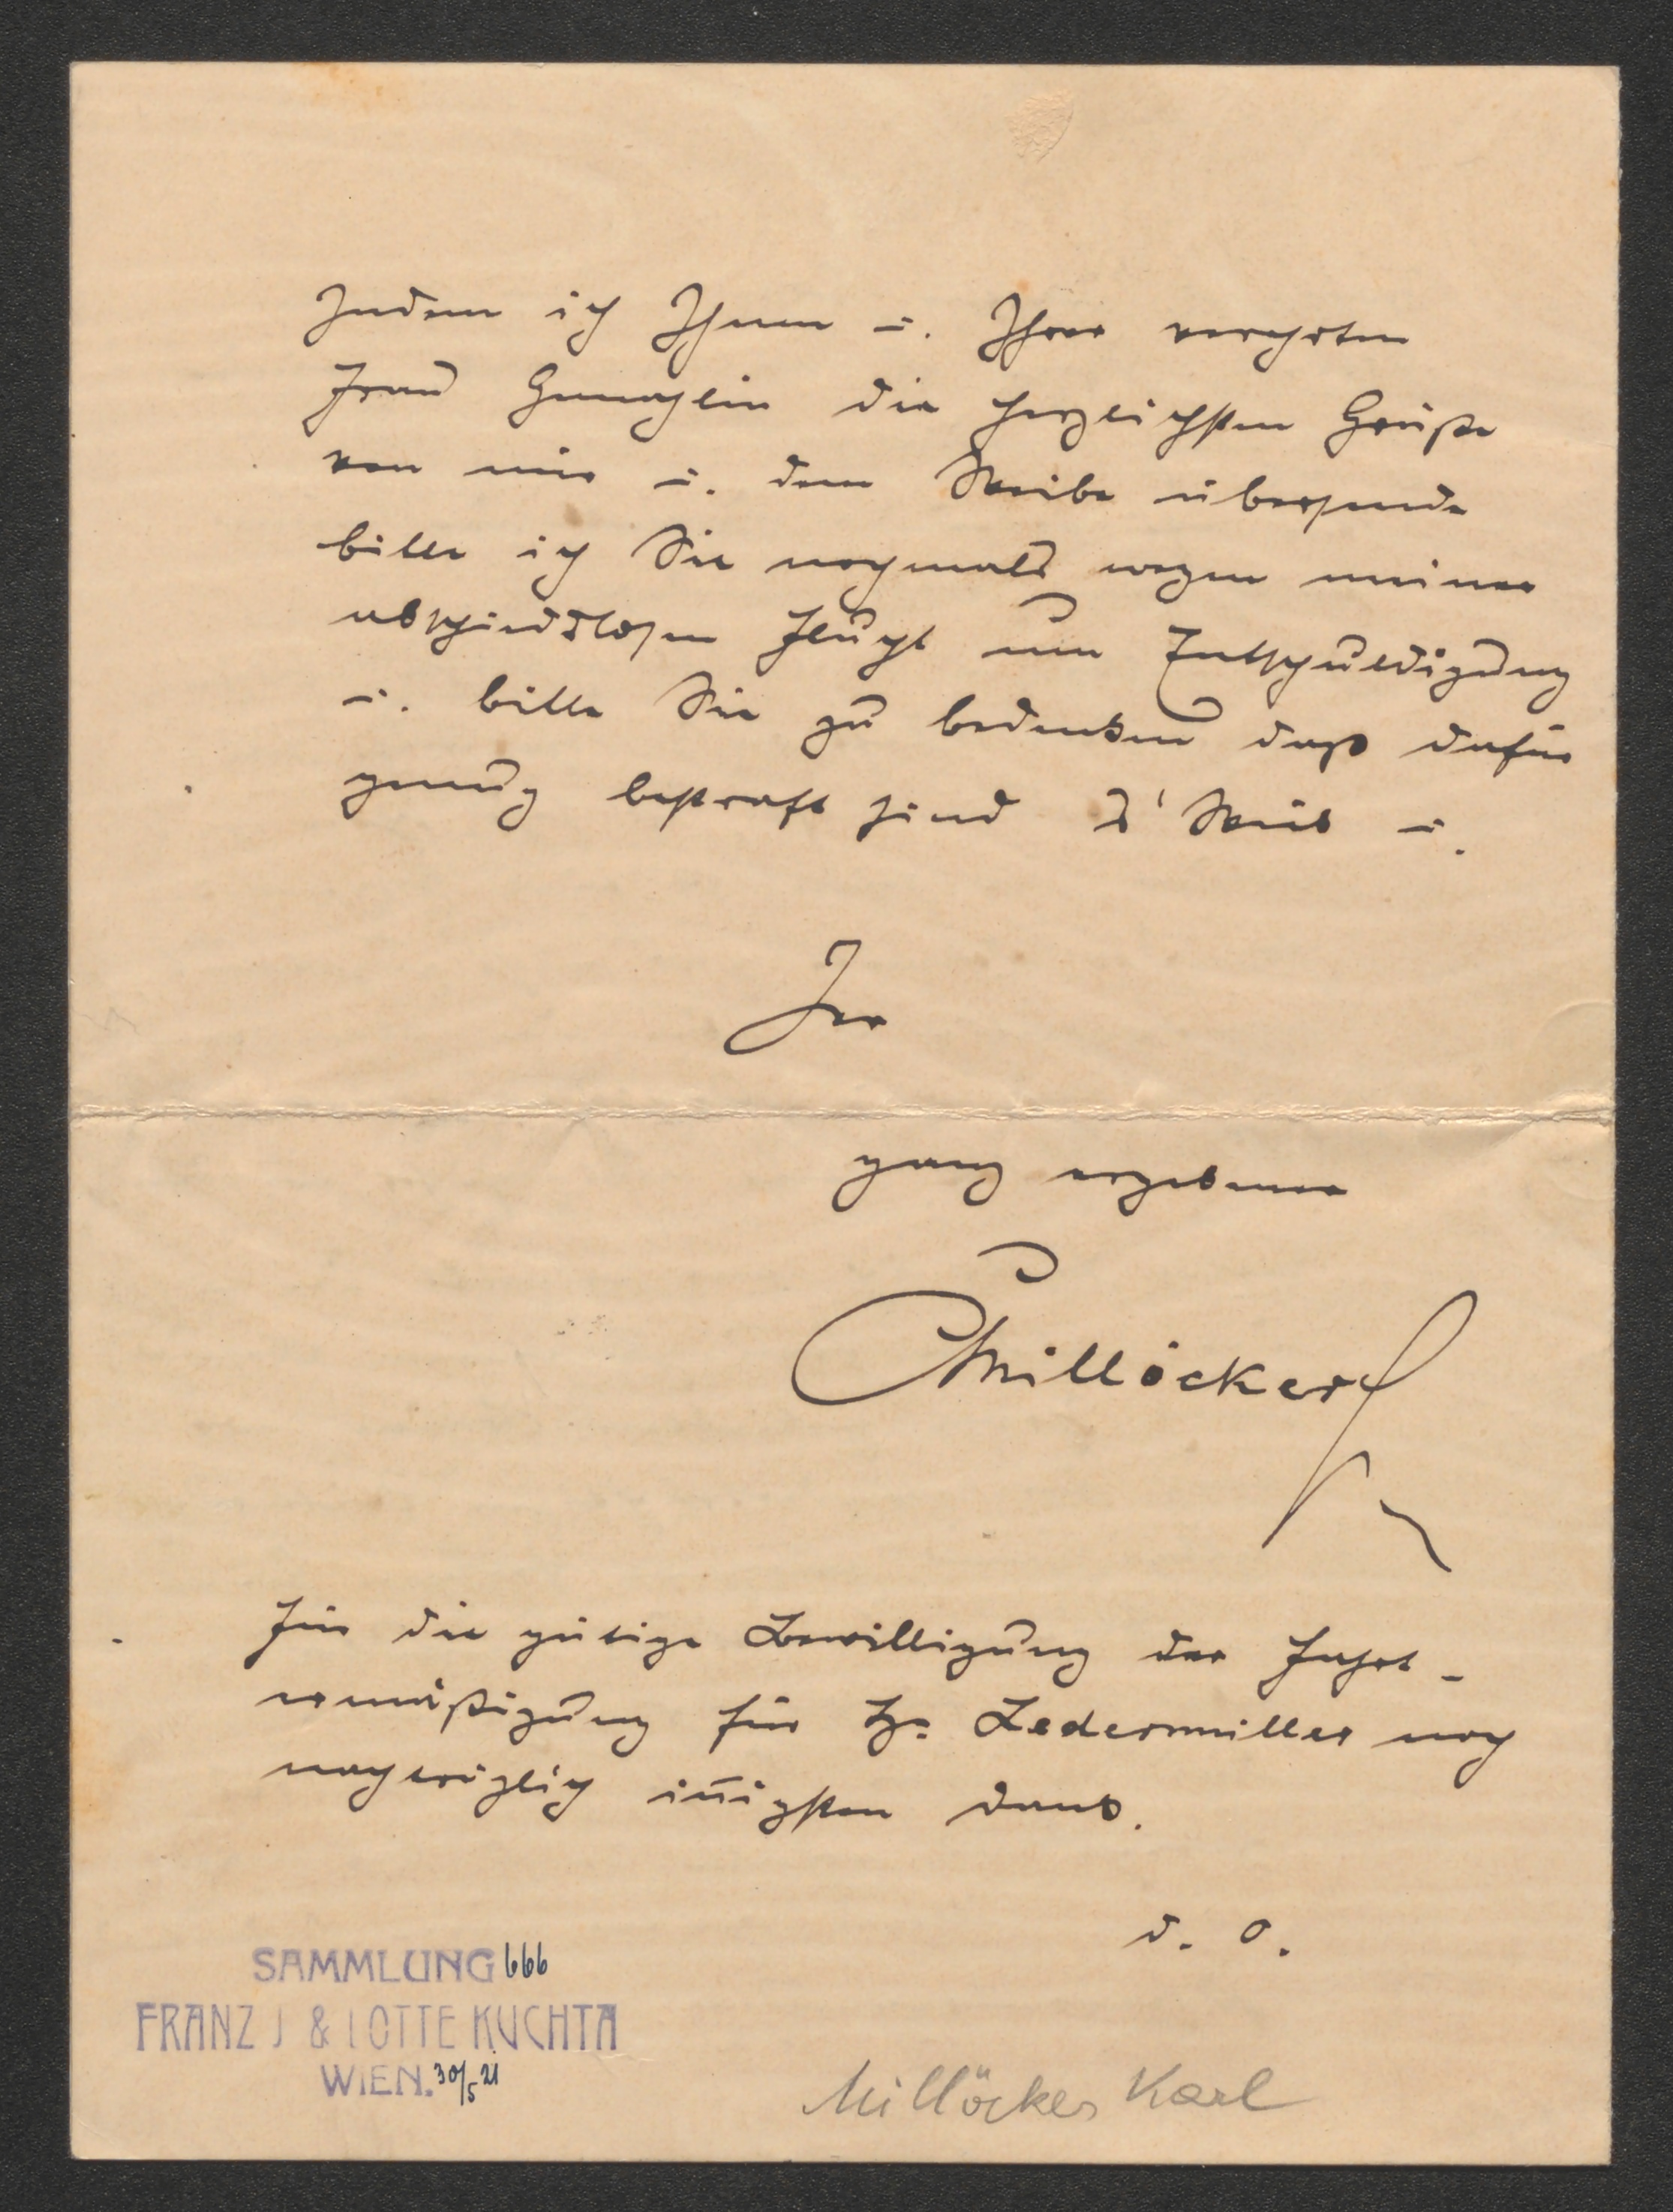 Indem ich Ihnen u. Ihrer verehrten
Frau Gemahlin die herzlichsten Grüße
von mir u. dem Weibe übersende
bitte ich Sie nochmals wegen meiner
abschiedslosen Flucht um Entschuldigung
u. bitte Sie zu bedenken daß dafür
genug bestraft sind s' Weib u.
Ihr
ganz ergebener
CMillöcker
Für die gütige Bewilligung der Fahrt-
ermäßigung für Hr. Ledermüller noch
nachträglich iñigsten Dank.
d. O.
SAMMLUNG 666
FRANZ J & LOTTE KUCHTA
WIEN. 30/5 21
Millöcker Karl